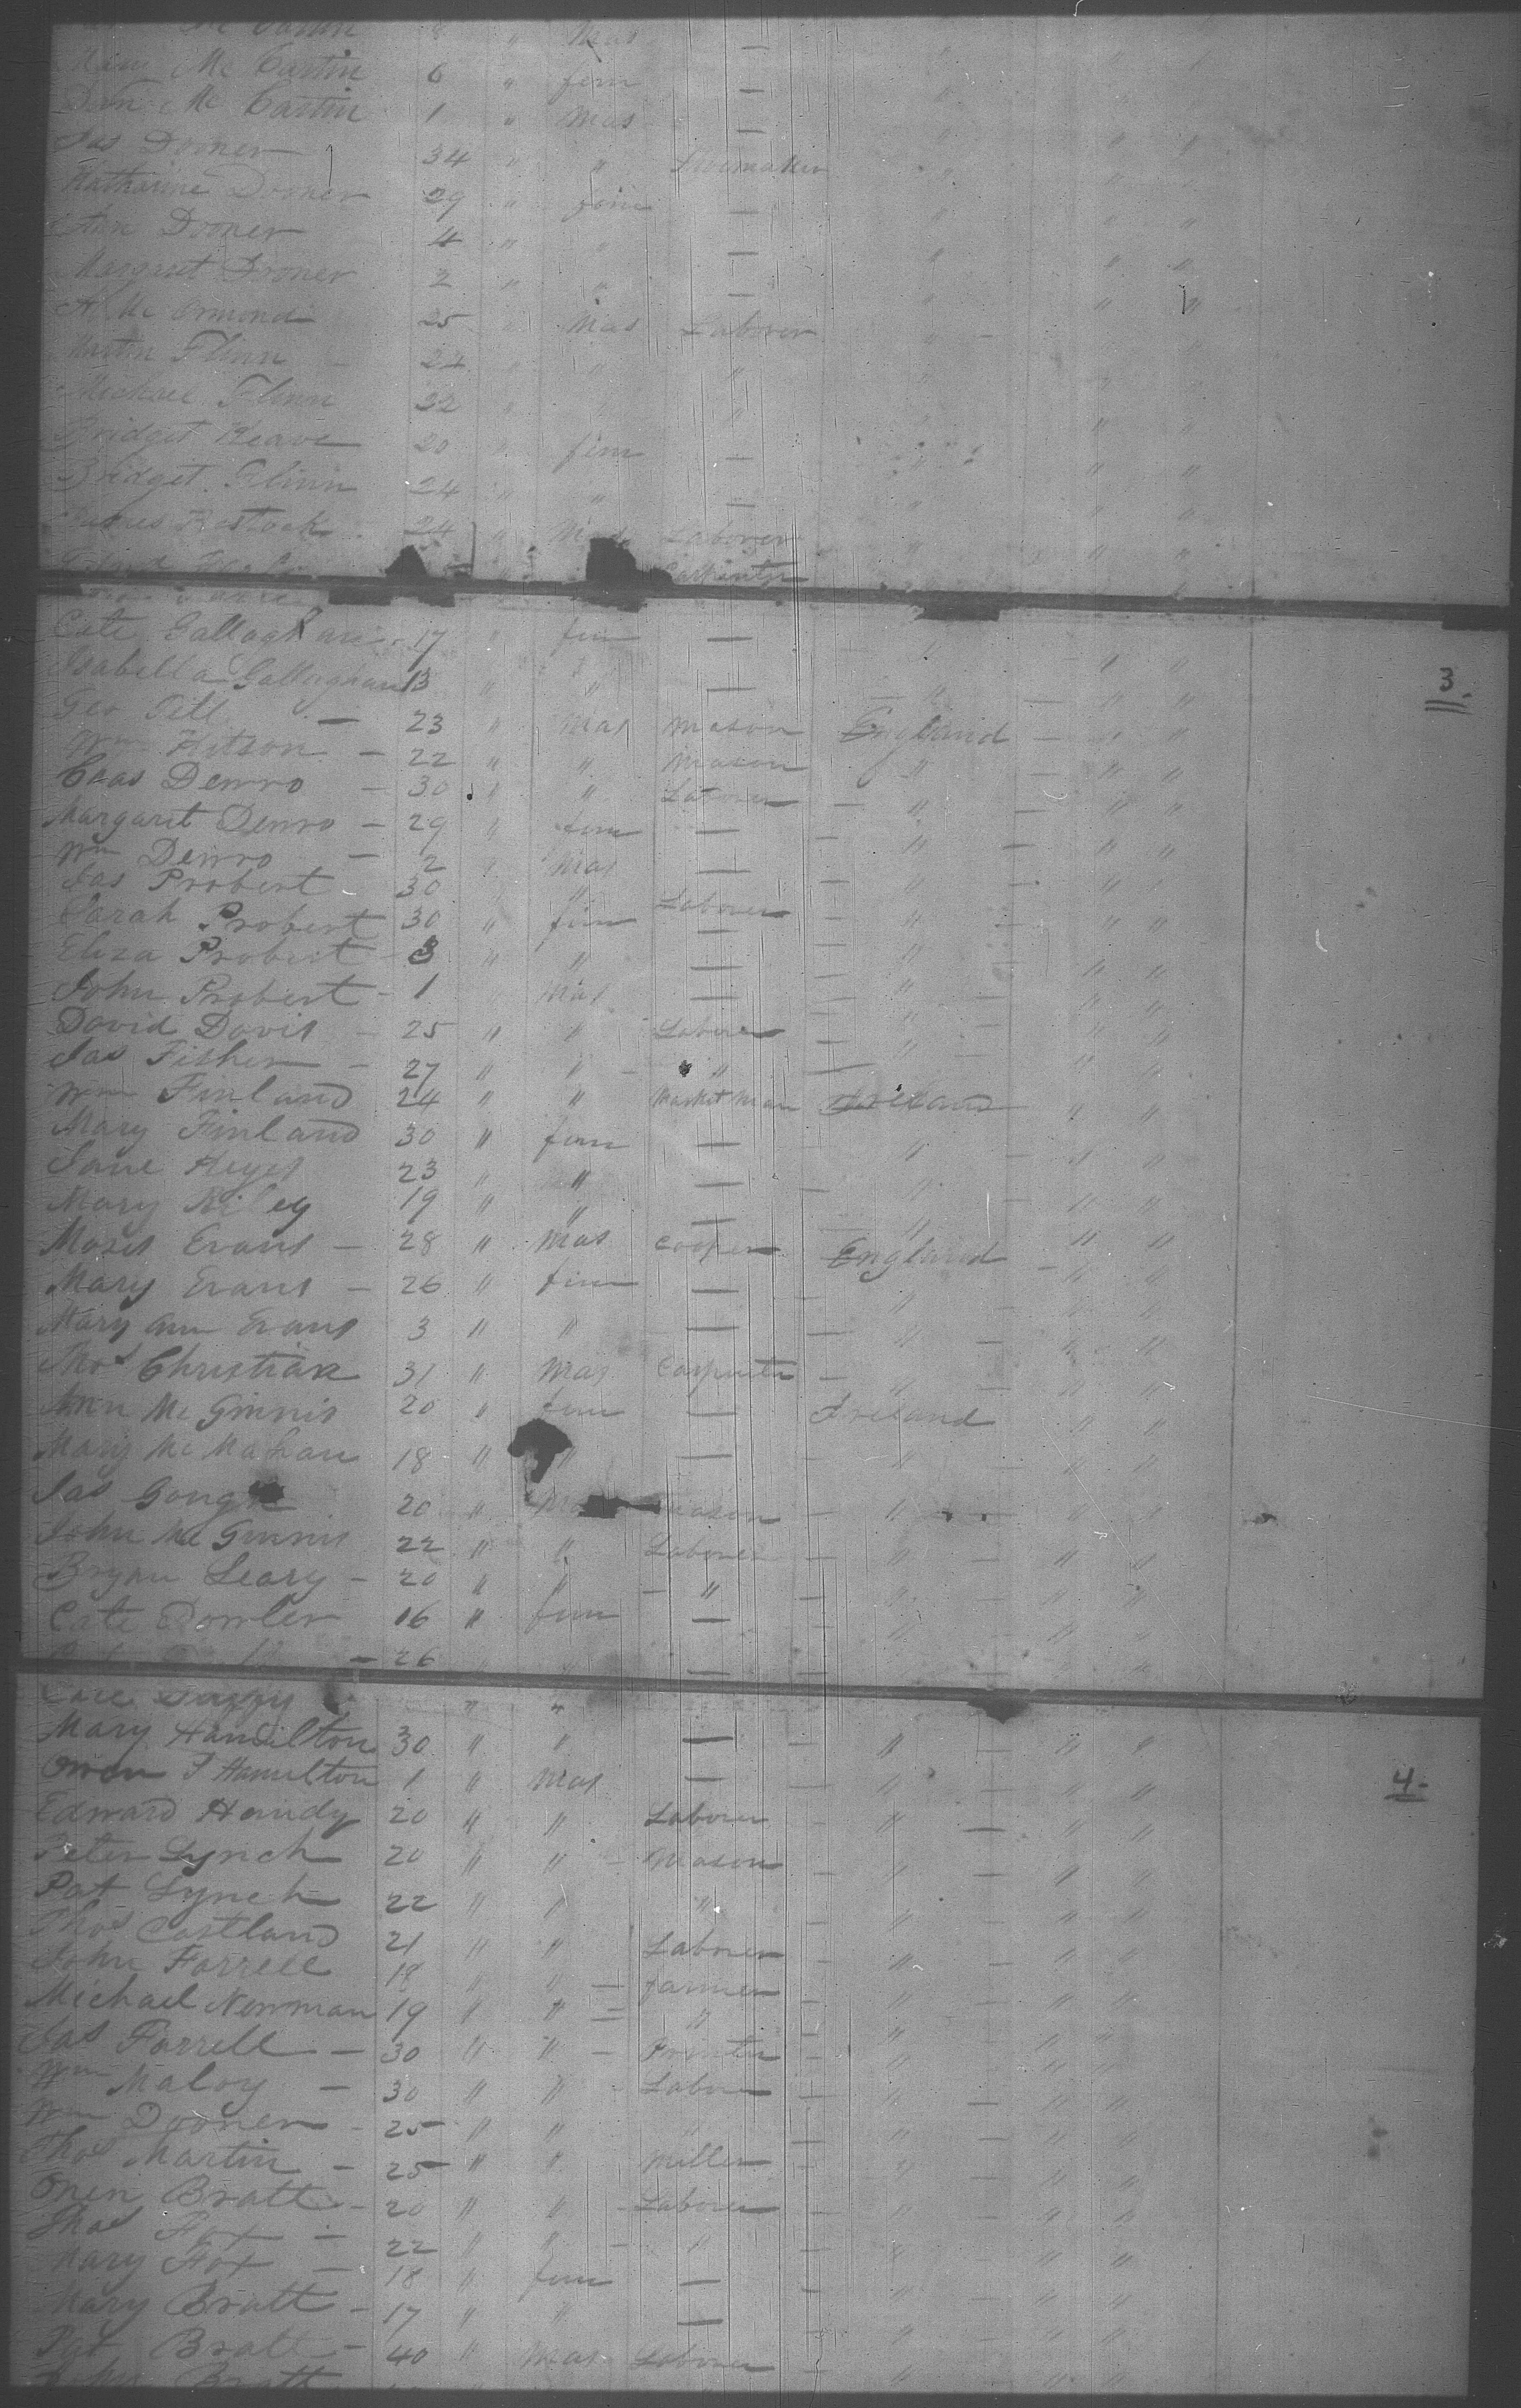 Mc Cartin 8 " Mas —
Mary Mc Cartin 6 " fem — " " "
Dan Mc Cartin 1 " Mas — " " "
Jas Dooner 34 " " Shoemaker " " "
Katharine Dooner 29 " fem — " " "
Ann Dooner 4 " " — " " "
Margaret Dooner 2 " " — " " "
Mc Ormond 25 " Mas Laborer " " "
Martin Flinn 24 " " " " " "
Michael Flinn 22 " " " " " "
Bridget Keave 20 " fem — " " "
Bridget Flinn 24 " " — " " "
James 24 " Mas Laborer " " "
Carpenter
Cate Gallaghan 17 " fem — " " "
Isabella Gallaghan 13 " " — " " "
3.
Geo Till — 23 " Mas Mason England — " "
Wm Hitson — 22 " " Mason " — " "
Chas Denro — 30 " " Laborer — " — " "
Margaret Denro — 29 " fem — — " — " "
Wm Denro — 2 " Mas — — " — " "
Jas Probert 30 " " Laborer — " — " "
Sarah Probert 30 " fem — — " — " "
Eliza Probert - 3 " " — — " — " "
John Probert - 1 " Mas — — " — " "
David Davis — 25 " " Laborer — " — " "
Jas Fisher — 27 " " — " — " "
Wm Finland 24 " " Market Man Ireland " "
Mary Finland 30 " fem — " — " "
Jane Keyes 23 " " — — " — " "
Mary Riley 19 " " — — " — " "
Moses Evans — 28 " Mas Cooper England — " "
Mary Evans — 26 " fem — " — " "
Mary Ann Evans 3 " " — — " — " "
Thos Christian 31 " Mas Carpenter — " — " "
Ann Mc Ginnis 20 " fem — Ireland " "
Mary Mc Mahan 18 " " — — " — " "
Jas 20 " Mason — " — " "
John Mc Ginnis 22 " " Laborer — " — " "
Bryan Leary — 20 " " — " — " — " "
Cate Dowler 16 " fem — " — " "
— 26 — —
Duffy " "
Mary Hamilton 30 " " — — " — " "
Owen J Hamilton 1 " Mas — — " — " "
4-
Edward Handy 20 " " Laborer — " — " "
Peter Lynch 20 " " — Mason — " — " "
Pat Lynch 22 " " " — " — " "
Thos Castland 21 " " Laborer — " — " "
John Farrell 18 " " — farmer — " — " "
Michael Newman 19 " " = " — " — " "
Jas Farrell — 30 " " — Printer — " — " "
Wm Maloy — 30 " " - Laborer — " — " "
Wm Dooner - 25 " " " — " — " "
Thos Martin — 25 " " Miller — " — " "
Owen Bratt - 20 " " - Laborer — " — " "
Thos Fox — 22 " " — " — " — " "
Mary Fox — 18 " fem — — " — " "
Mary Bratt — 17 " " — — " — " "
Pat Bratt — 40 " Mas Laborer — " — " "
Bratt